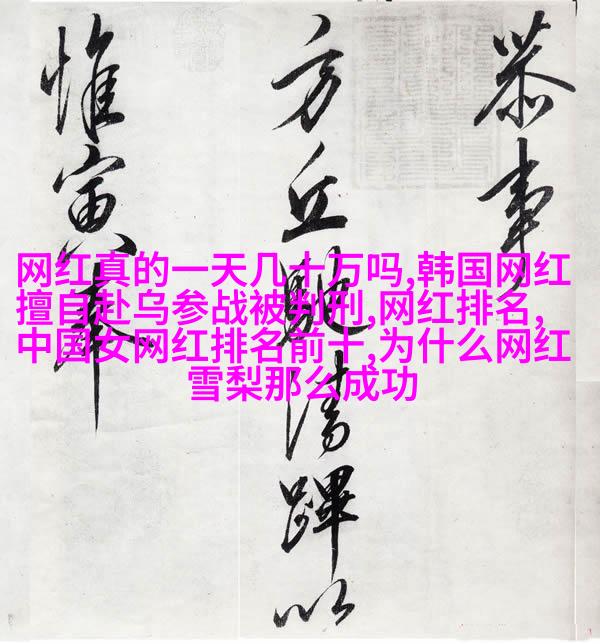 恭事
方丘馳清蹕以
惟寅奉
网红真的一天几十万吗,韩国网红
擅自赴乌参战被判刑,网红排名,
中国女网红排名前十,为什么网红
雪梨那么成功